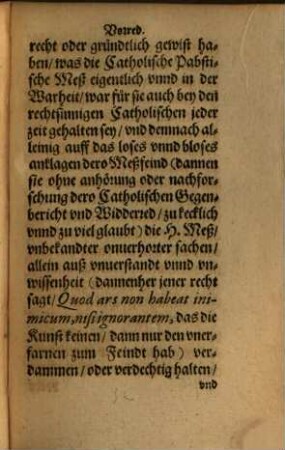 Vorred.
recht oder gründtlich gewist ha-
ben/ was die Catholische Pabsti-
sche Meß eigentlich vnnd in der
Warheit/ war für sie auch bey den
rechtsinnigen Catholischen jeder
zeit gehalten sey/ vnd demnach al-
leinig auff das loses vnnd bloses
anklagen dero Meßfeind (dannen
sie ohne anhörung oder nachfor-
schung dero Catholischen Gegen-
bericht vnd Widderred/ zu kecklich
vnnd zu viel glaubt) die H. Meß/
vnbekandter onuerhotter sachen/
allein auß vnuerstandt vnnd vn-
wissenheit (dannenher jener recht
sagt/ Quod ars non habeat ini-
micum, nisi ignorantem, das die
Kunst keinen/ dann nur den vner-
farnen zum Feindt hab) ver-
dammen/ oder verdechtig halten/
vnd